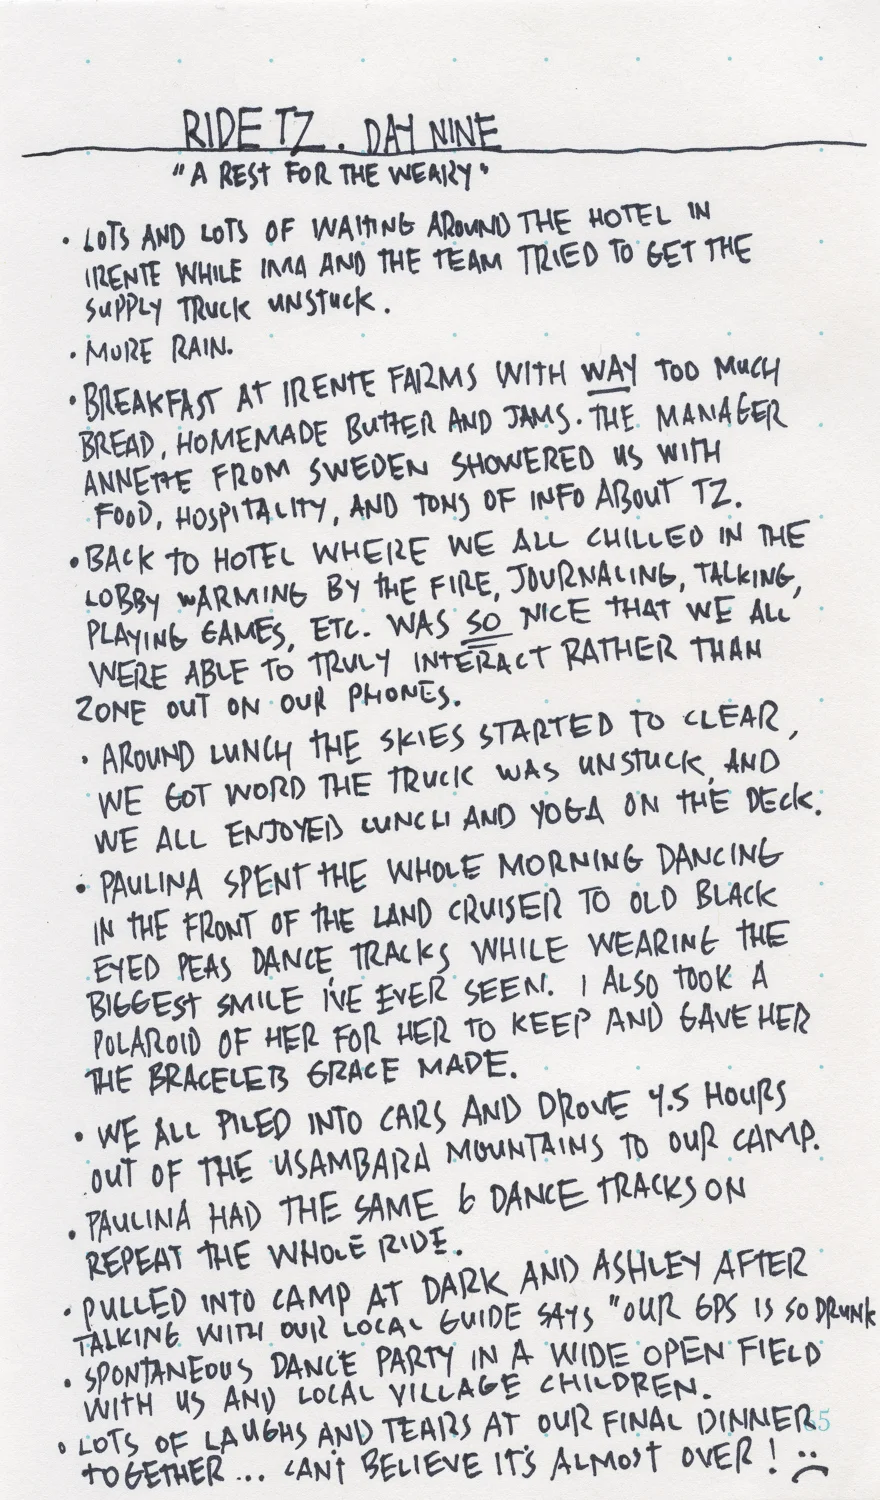 RIDE TZ. DAY NINE
"A REST FOR THE WEARY"
• LOTS AND LOTS OF WAITING AROUND THE HOTEL IN
IRENTE WHILE IMA AND THE TEAM TRIED TO GET THE
SUPPLY TRUCK UNSTUCK.
• MORE RAIN.
• BREAKFAST AT IRENTE FARMS WITH WAY TOO MUCH
BREAD, HOMEMADE BUTTER AND JAMS. THE MANAGER
ANNETTE FROM SWEDEN SHOWERED US WITH
FOOD, HOSPITALITY, AND TONS OF INFO ABOUT TZ.
• BACK TO HOTEL WHERE WE ALL CHILLED IN THE
LOBBY WARMING BY THE FIRE, JOURNALING, TALKING,
PLAYING GAMES, ETC. WAS SO NICE THAT WE ALL
WERE ABLE TO TRULY INTERACT RATHER THAN
ZONE OUT ON OUR PHONES.
• AROUND LUNCH THE SKIES STARTED TO CLEAR,
WE GOT WORD THE TRUCK WAS UNSTUCK, AND
WE ALL ENJOYED LUNCH AND YOGA ON THE DECK.
• PAULINA SPENT THE WHOLE MORNING DANCING
IN THE FRONT OF THE LAND CRUISER TO OLD BLACK
EYED PEAS DANCE TRACKS WHILE WEARING THE
BIGGEST SMILE I'VE EVER SEEN. I ALSO TOOK A
POLAROID OF HER FOR HER TO KEEP AND GAVE HER
THE BRACELETS GRACE MADE.
• WE ALL PILED INTO CARS AND DROVE 4.5 HOURS
OUT OF THE USAMBARA MOUNTAINS TO OUR CAMP.
• PAULINA HAD THE SAME 6 DANCE TRACKS ON
REPEAT THE WHOLE RIDE.
• PULLED INTO CAMP AT DARK AND ASHLEY AFTER
TALKING WITH OUR LOCAL GUIDE SAYS "OUR GPS IS SO DRUNK
• SPONTANEOUS DANCE PARTY IN A WIDE OPEN FIELD
WITH US AND LOCAL VILLAGE CHILDREN.
• LOTS OF LAUGHS AND TEARS AT OUR FINAL DINNER
TOGETHER... CAN'T BELIEVE IT'S ALMOST OVER! :(